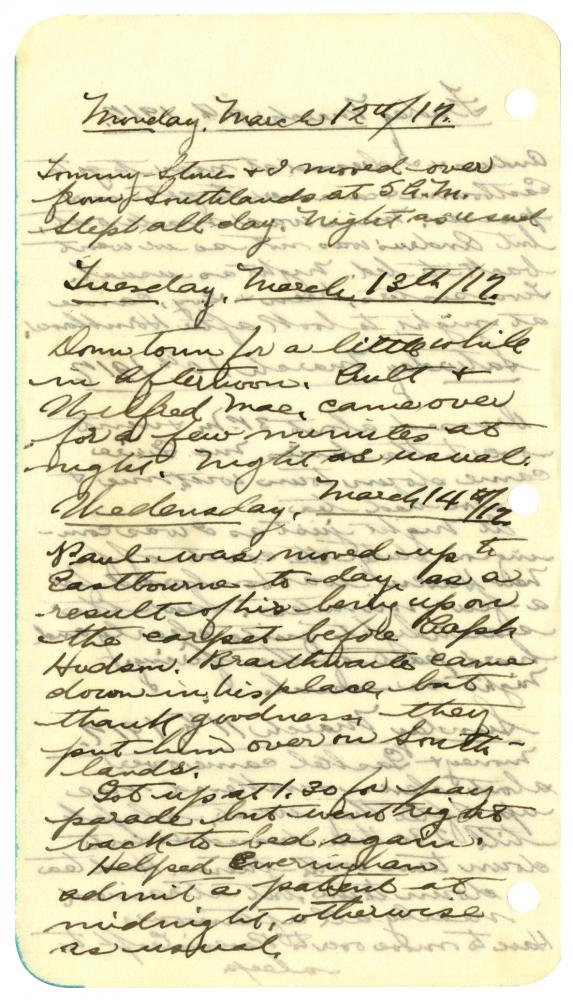 Monday, March 12th/17.
Tommy Stines & I moved over
from Southlands at 5 A.M.
Slept all day. Night as usual
Tuesday, March 13th/17.
Down town for a little while
in afternoon. Ault &
Wilfred Mac. came over
for a few minutes at
night. Night as usual.
Wedensday, March 14th/17
Paul was moved up to
Eastbourne to-day, as a
result of his being up on
the carpet before Capt.
Hudson. Braithwaite came
down in his place, but
thank goodness, they
put him over on South-
lands.
Got up at 1.30 for pay
parade but went right
back to bed again.
Helped Everingham
admit a patient at
midnight, otherwise
as usual.